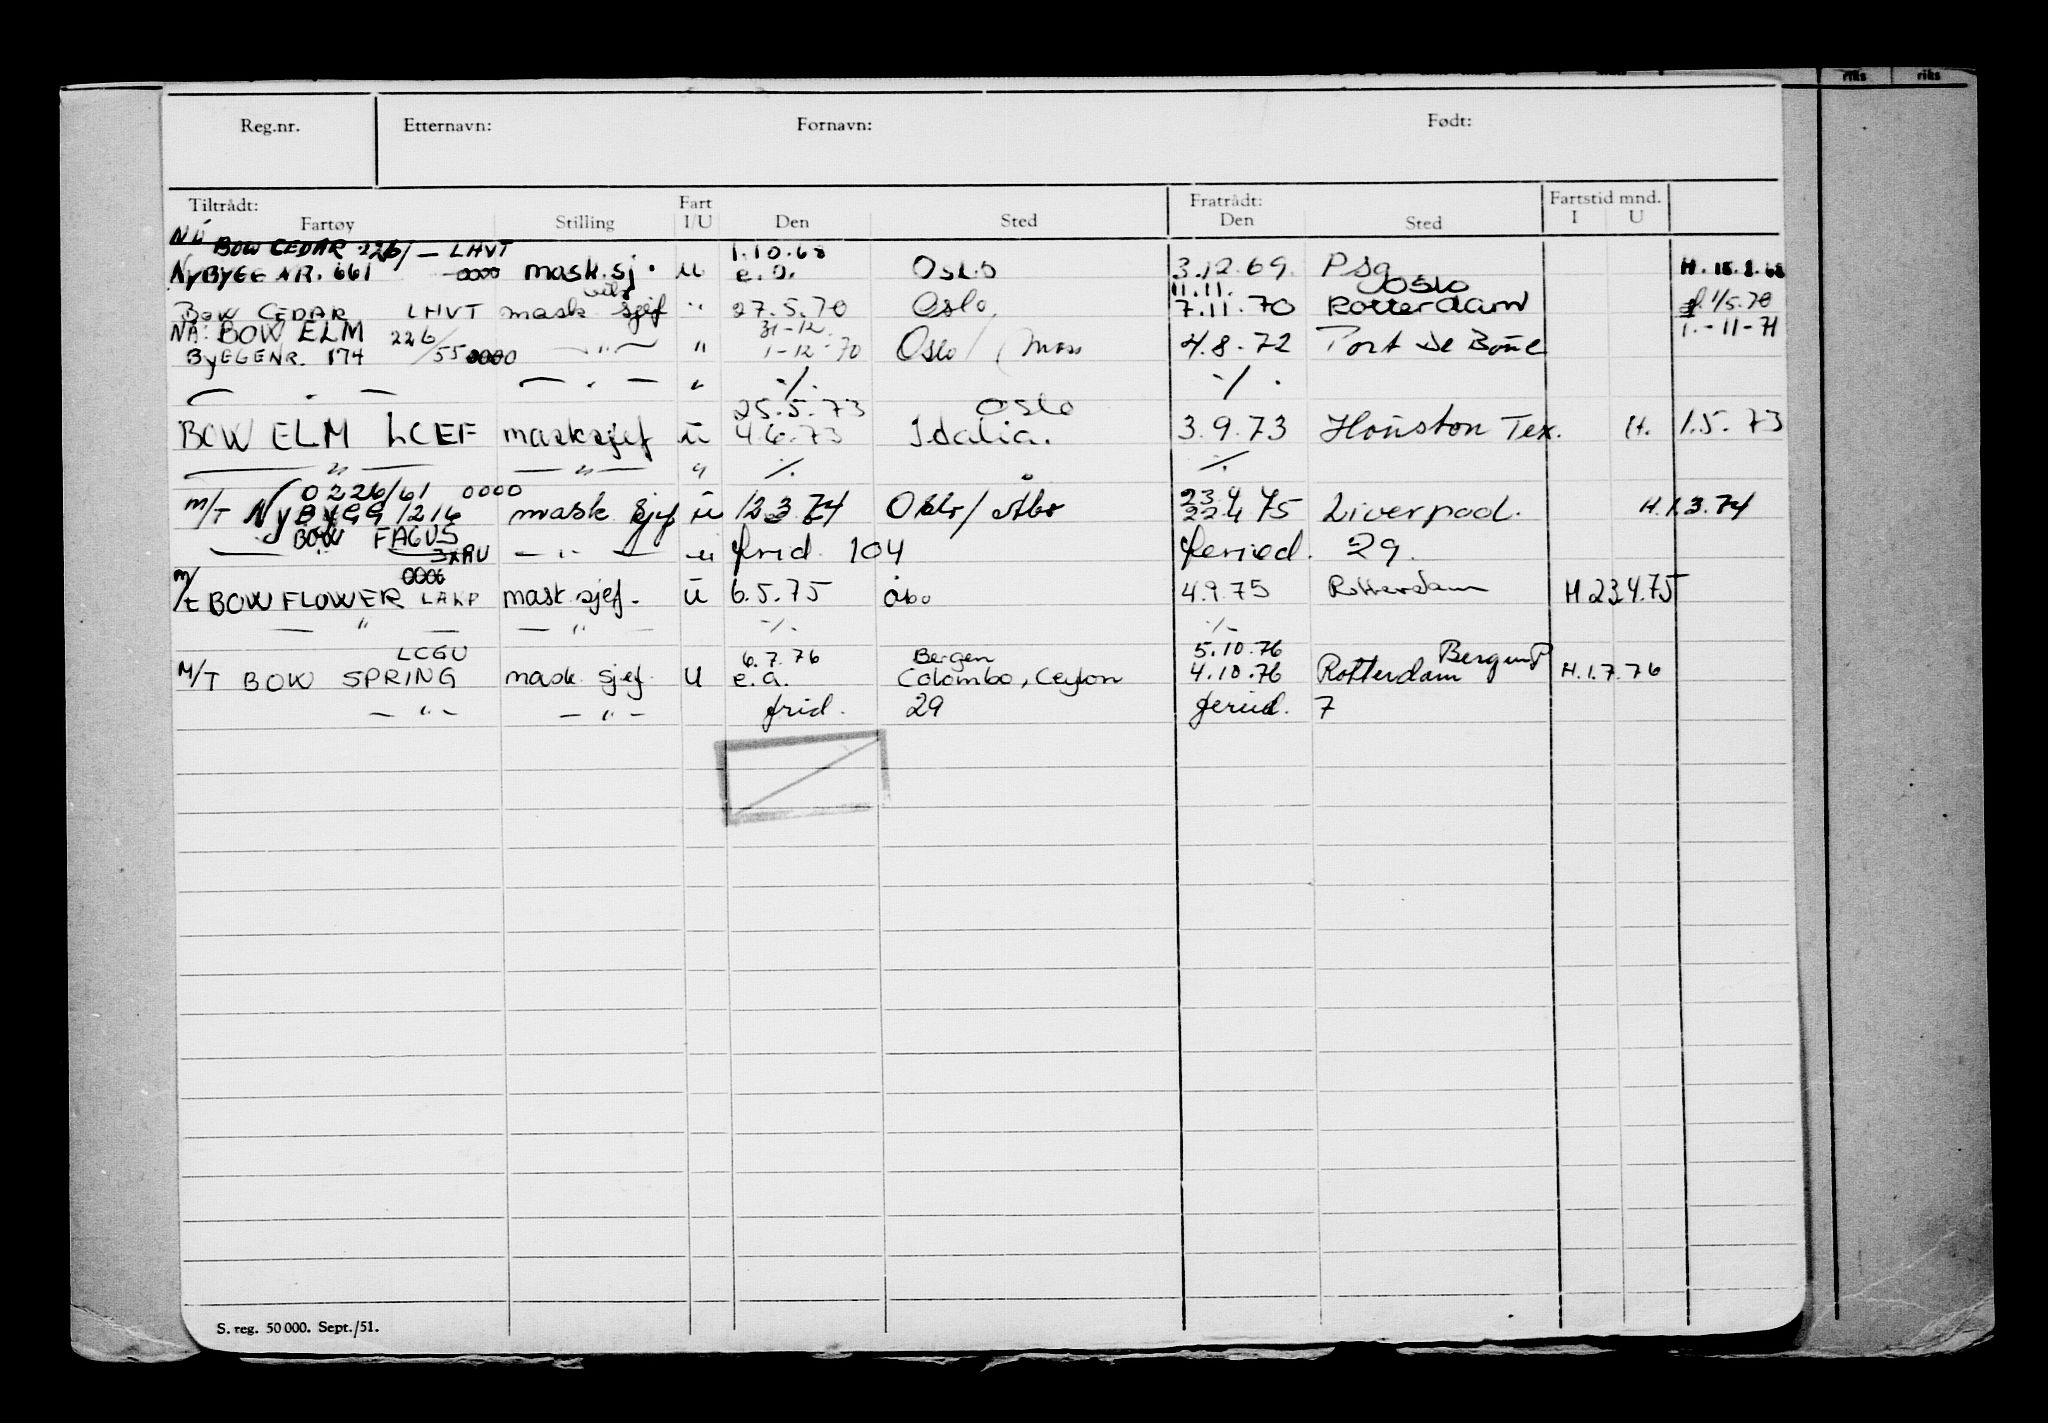 riks riks
Reg.nr. Etternavn: Fornavn: Født:
Tiltrådt: Fartøy Stilling Fart I/U Den Sted Fratrådt: Den Sted Fartstid mnd. I U
NÅ BOW CEDAR 226/- LHVT 1.10.68
NYBYGG NR. 661 0000 mask.sj. u e.o. Oslo 3.12.69. Psg H. 15.8.68
11.11. Oslo
BOW CEDAR LHVT mask sjef " 27.5.70 Oslo, 7.11.70 Rotterdam 1/5.70
NÅ: BOW ELM 226 31-12. 1.-11-71
BYEGENR. 174 /55 0000 — " — " 1-12-70 Oslo/ Moss 4.8.72 Port de Bouc
— " — — " — " ·/. ·/.
25.5.73 Oslo
BOW ELM LCEF masksjef u 4.6.73 Idalia. 3.9.73 Houston Tex. H. 1.5.73
— " — — " — " ·/. ·/.
0226/61 0000 23
m/T NYBYGG 1216 mask sjef u 12.3.74 Oslo/Åbo 22.4.75 Liverpool. H.1.3.74
BOW FAGUS
— " — 3XAU — " — u frid. 104 feried. 29.
0006
m/t BOW FLOWER LAKP mask.sjef. u 6.5.75 Åbo 4.9.75 Rotterdam H 23.4.75
— " — — " — ·/. ·/.
LCGU 6.7.76 Bergen 5.10.76 Bergen
M/T BOW SPRING mask. sjef. U e.a. Colombo, Ceylon 4.10.76 Rotterdam H.1.7.76
— " — — " — frid. 29 feried. 7
S. reg. 50 000. Sept./51.